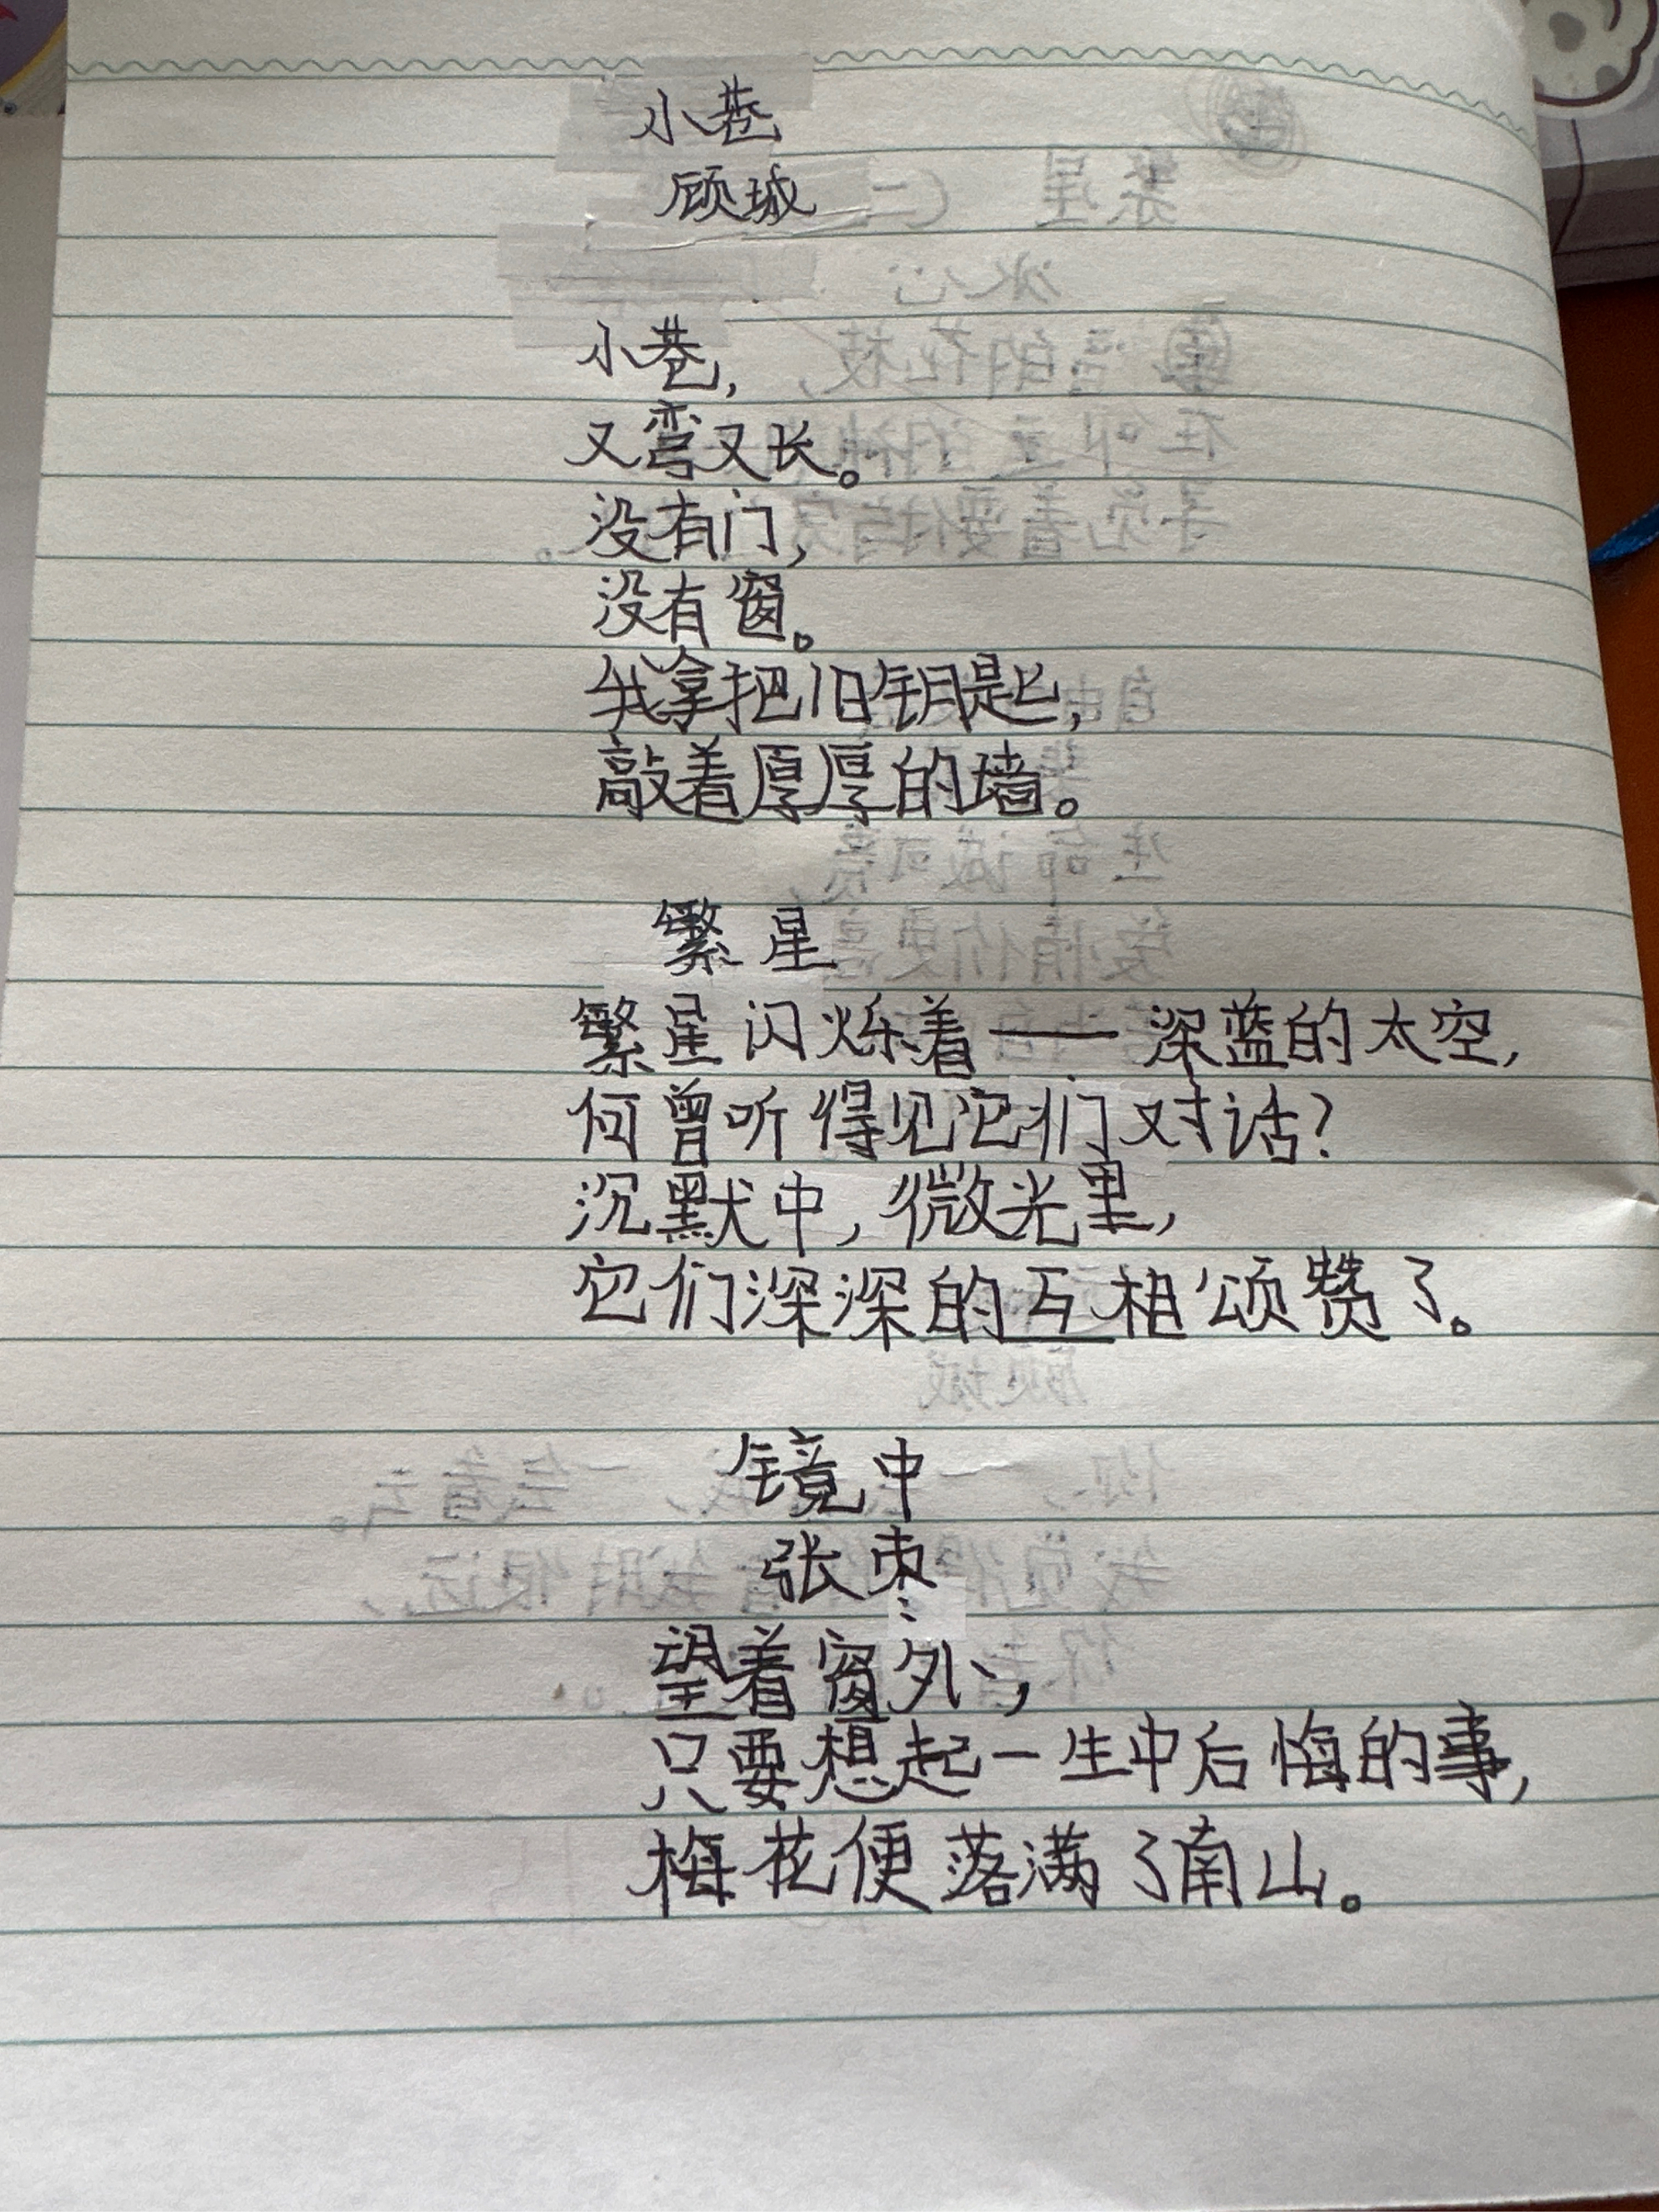 小巷
顾城
小巷,
又弯又长。
没有门,
没有窗。
我拿把旧钥匙,
敲着厚厚的墙。
繁星
繁星闪烁着——深蓝的太空,
何曾听得见它们对话?
沉默中,微光里,
它们深深的互相颂赞了。
镜中
张枣
望着窗外,
只要想起一生中后悔的事,
梅花便落满了南山。